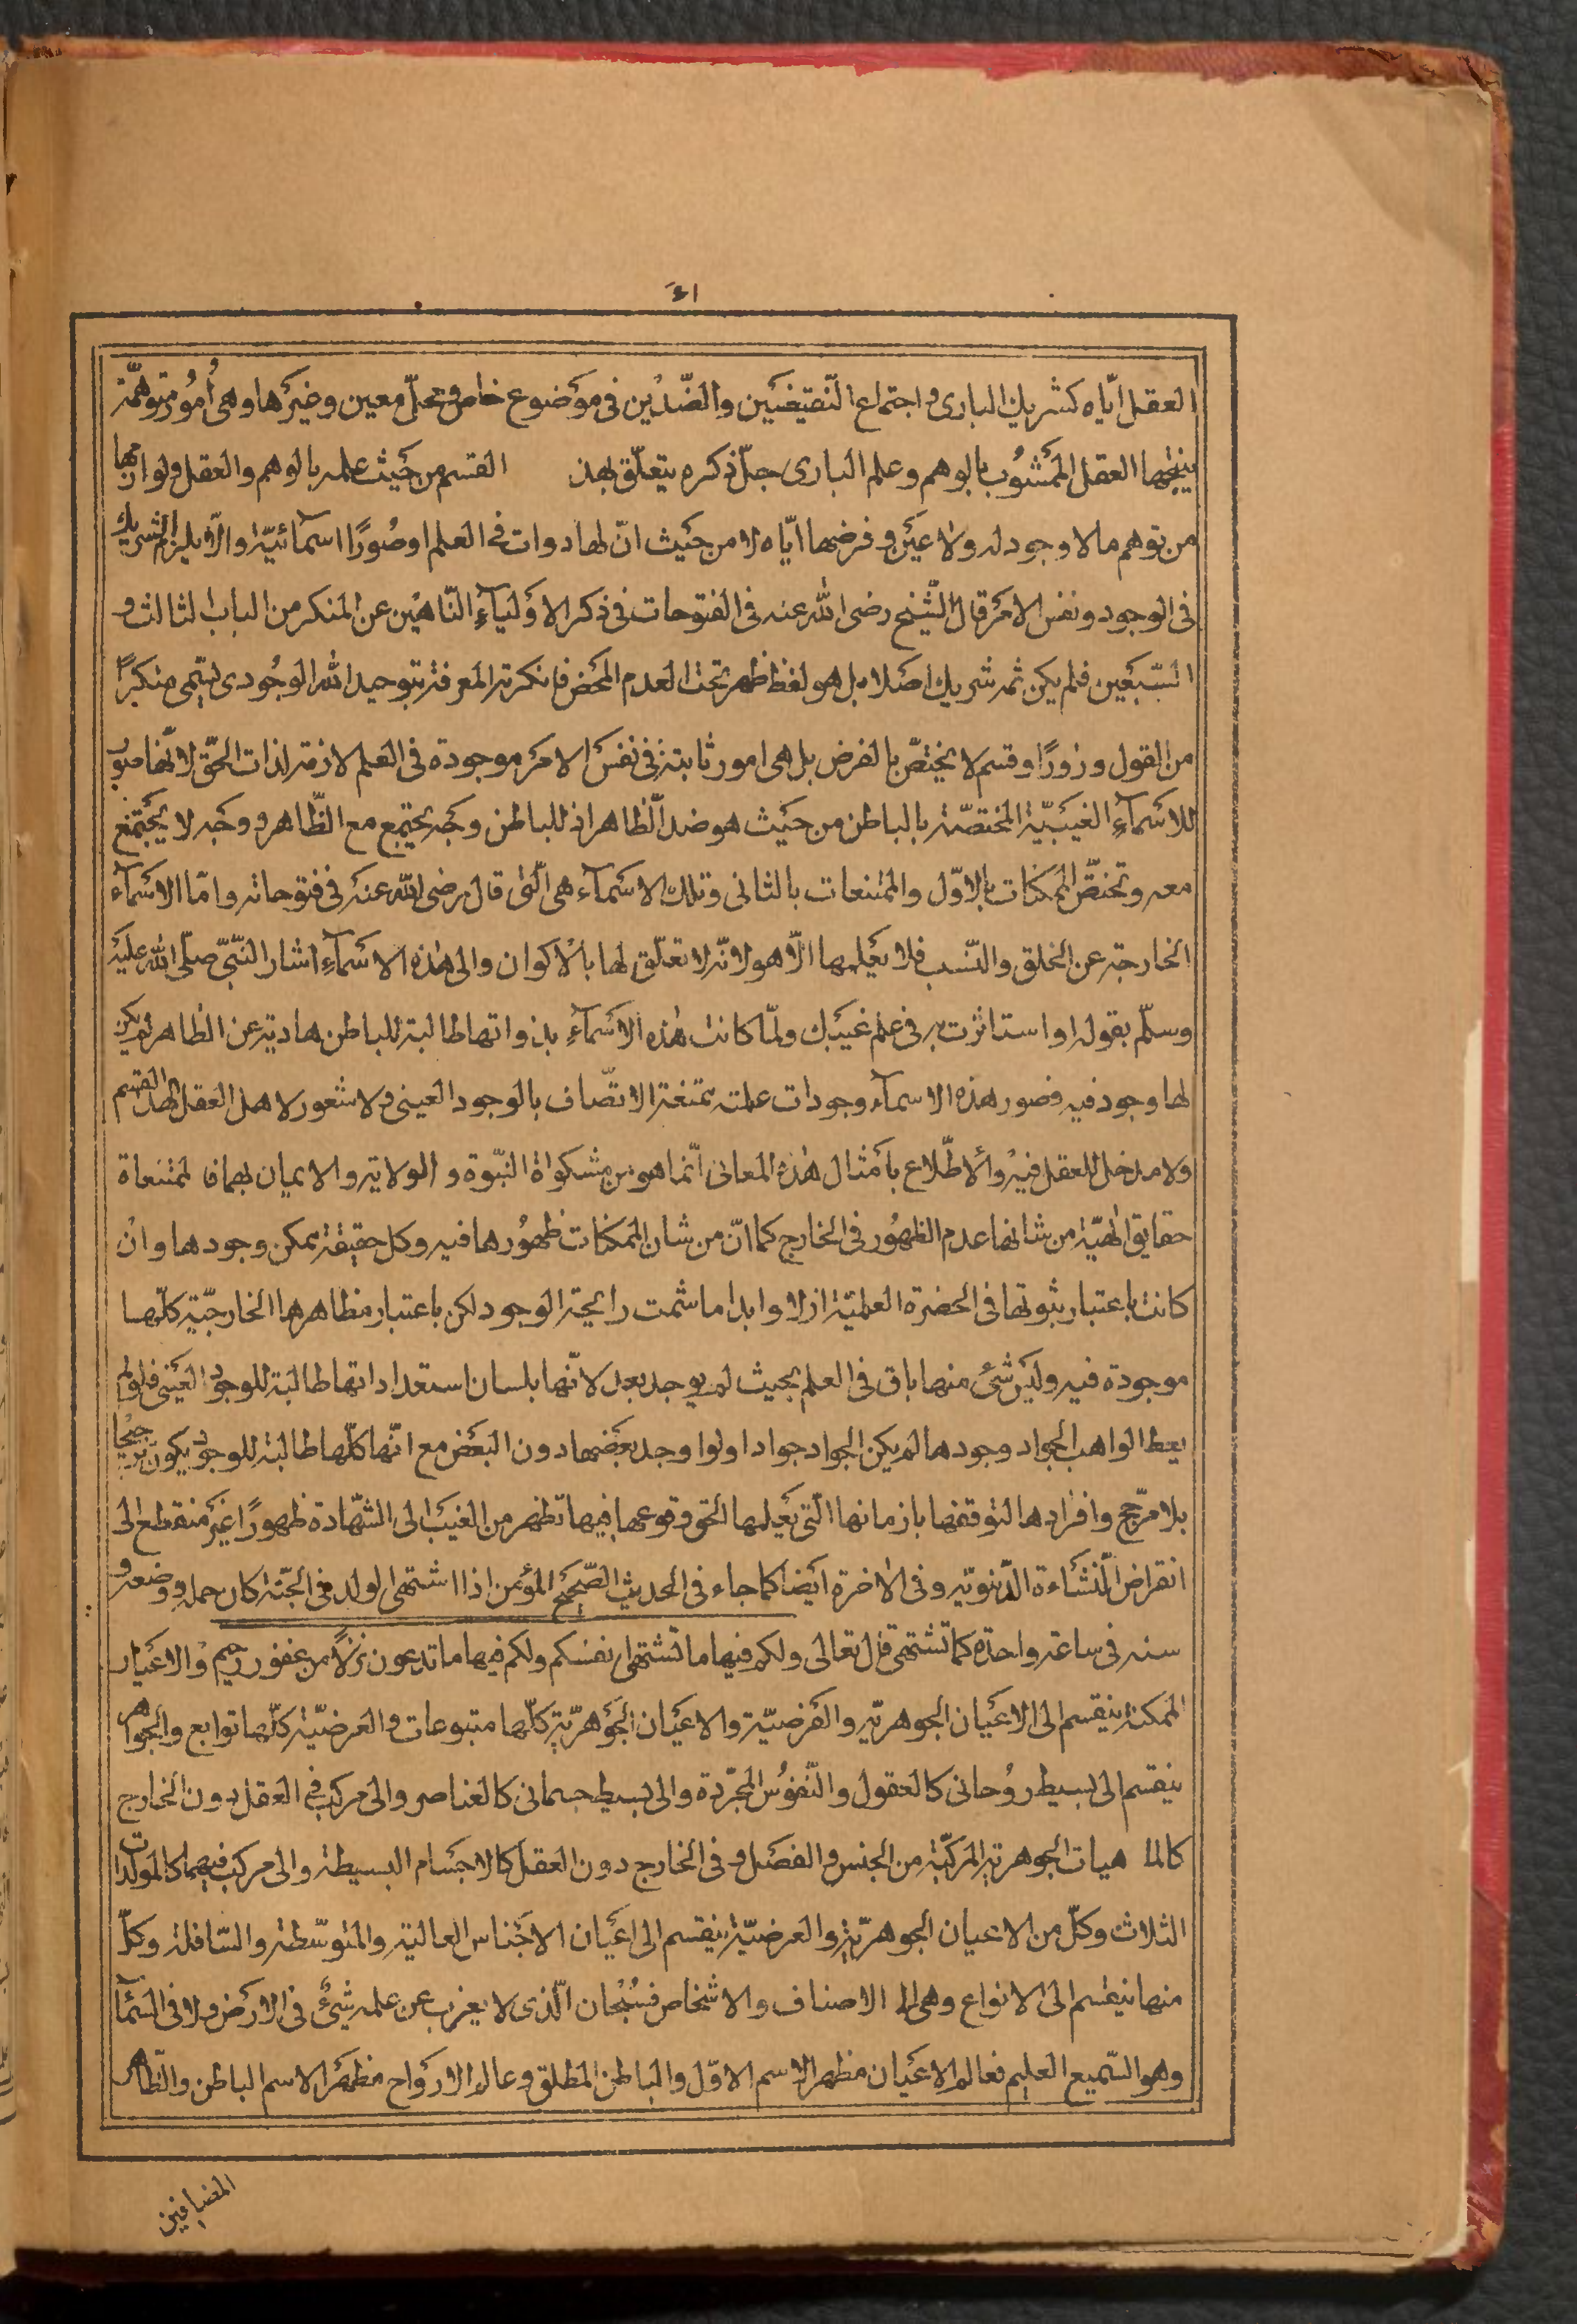 ١٤
العقل ايّاه كشريك البارى واجتماع النّقيضَين والضّدّين فى مَوضوع خاص ومحلّ معين وغيرَها وهى أُمُور متوهّمة
ينتجها العقل المَشوُب بالوهم وعلم البارى جلّ ذكره يتعلّق بهذ القسم من حَيث علمه بالوهم والعقل ولوازمهما
من توهم ما لا وجود له ولا عَين وفرضها ايّاه لا من حَيث انّ لها ذوات فى العلم او صُورًا اسمآئيّة والّا يلزم الشريك
فى الوجود ونفس الامَر قال الشّيخ رضى الله عنه فى الفتوحات فى ذكر الاوَليآءِ النّاهين عن المنكر من الباب الثالث و
السّبعَين فلم يكن ثمه شريك اصَلا بل هو لفظ ظهر تحت العدم المحَض فانكرته المعرفة بتوحيد الله الوجُودى فيسّمى منكرًا
من القول وزورًا وقسم لا يختصّ بالفرض بل هى امور ثابتة فى نفسَ الامَر موجودة فى العلم لازمة لذات الحقّ لانّها صور
للاسَمآءِ الغيَبيّة المختصّة بالباطن من حَيث هو ضد الّظاهر اذ للباطن وجَه يجتمع مع الظّاهر ووجَه لا يجَتمع
معه وتختصّ الممكنات بالاوّل والممتنعات بالثانى وتلك الاسَمآء هى الّتى قال رضى الله عنَه فى فتوحاته وامّا الاسَمآء
الخارجة عن الخلق والنّسب فلا يَعلمها الّا هو لانّه لا تعلّق لها بالاكوان والى هذه الاسَمآءِ اشار النّبىّ صلّى الله عليَه
وسلّم بقوله او استاثرت به فى علم غيَبك ولمّا كانت هٰذه الاسَمآءِ بذواتها طالبة للباطن هادية عن الظاهر لم يكن
لها وجود فيه فصور هذه الاسمآء وجودات علمته ممتنعة الاتصّاف بالوجود العينى ولا شعور لاهل العقل بهذا القسم
ولا مدخل للعقل فيه والاطّلاع بامَثال هٰذه المعانى انّما هو من مشكواة النبّوة والولاية والايمان بهما فا لمتنعاة
حقايق الٰهيّة من شانها عدم الظهُور فى الخارج كما انّ من شان الممكنات ظهُورها فيه وكل حقيقة يمكن وجودها وان
كانت باعتبار ثبوتها فى الحضرة العلميّة ازلا وابدا ما شمت رايحة الوجود لكن باعتبار مظاهرها الخارجيّة كلّها
موجودة فيه وليَس شَئ منها باق فى العلم بحيث لم يوجد بعد لانّها بلسان استعداداتها طالبة للوجود العيَنى فلو لم
يعط الواهب الجواد وجودها لم يكن الجواد جوادا ولوا وجد بعضَها دون البعَض مع انّها كلّها طالبة للوجود يكون ترجيحا
بلا مرّجح وافرادها لتوقفها بازمانها الّتى يَعلمها الحق وقوعها فيها تظهر من الغيَب الى الشهّادة ظهورًا غيَر منقطع الى
انقراض النّشَاءة الدّنيوتيه وفى الاخرة ايَضا كما جاء فى الحديث الصّحيح المؤمن اذا اشتهى الولد فى الجنّة كان حمله ووضعه و
سنه فى ساعة واحدة كما تَشتهى قال تعالى ولكم فيها ما تَشتهى انفسَكم ولكم فيها ما تدعون نزُلًا من غفور رحيم والاعَيان
الممكنة ينقسم الى الاعَيان الجوهريّه والعَرضيّة والاعَيان الجَوهَريّة كلّها متبوعات والعَرضيّة كلّها توابع والجواهر
ينقسم الى بسيط روُحانى كالعقول والنّفوُس المجرّدة والى بسيط جسمانى كالعناصر والى مركب فى العقل دون الخارج
كالما هيات الجوهريّة المركّبة من الجنس والفصَل وفى الخارج دون العقل كالاجَسام البسيطة والى مركب فيهما كالمولّدات
الثلاث وكلّ من الاعيان الجوهريّة والعرضيّة ينقسم الى اعَيان الاجَناس العالية والمتوسّطة والسّافلة وكلّ
منها ينقسم الى الانواع وهى الى الاصناف والاشخاص فسُبحان الّذى لا يعزب عن علمه شَئ فى الارَض ولا فى السّمآء
وهو السّميع العليم فعالم الاعَيان مظهر الاسم الاوّل والباطن المطلق وعالم الارَواح مظهَر الاسم الباطن والظّاهر
المضافين